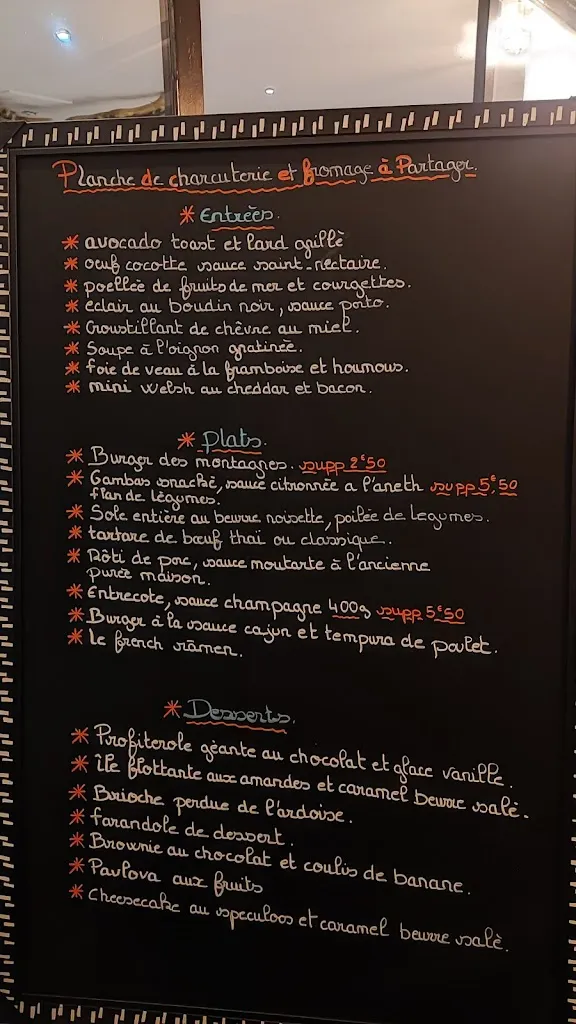 Planche de charcuterie et fromage à Partager.
* Entrées.
* avocado toast et lard grillè
* oeuf cocotte sauce saint-nectaire.
* poellèe de fruits de mer et courgettes.
* éclair au boudin noir, sauce porto.
* Croustillant de chêvre au miel.
* Soupe à l'oignon gratinèe.
* foie de veau à la framboise et houmous.
* mini Welsh au cheddar et bacon.
* Plats.
* Burger des montagnes. supp 2€50
* Gambas snackè, sauce citronnèe a l'aneth supp 5€50
flan de lègumes.
* Sole entière au beurre noisette, poilèe de legumes.
* tartare de bœuf thaï ou classique.
* Rôti de porc, sauce moutarte à l'ancienne
purèe maison.
* Entrecote, sauce champagne 400g supp 5€50
* Burger à la sauce cajun et tempura de poulet.
* le french rāmen.
* Desserts.
* Profiterole gèante au chocolat et glace vanille.
* île flottante aux amandes et caramel beurre salè.
* Brioche perdue de l'ardoise.
* farandole de dessert.
* Brownie au chocolat et coulis de banane.
* Pavlova aux fruits
* Cheesecake au speculoos et caramel beurre salè.